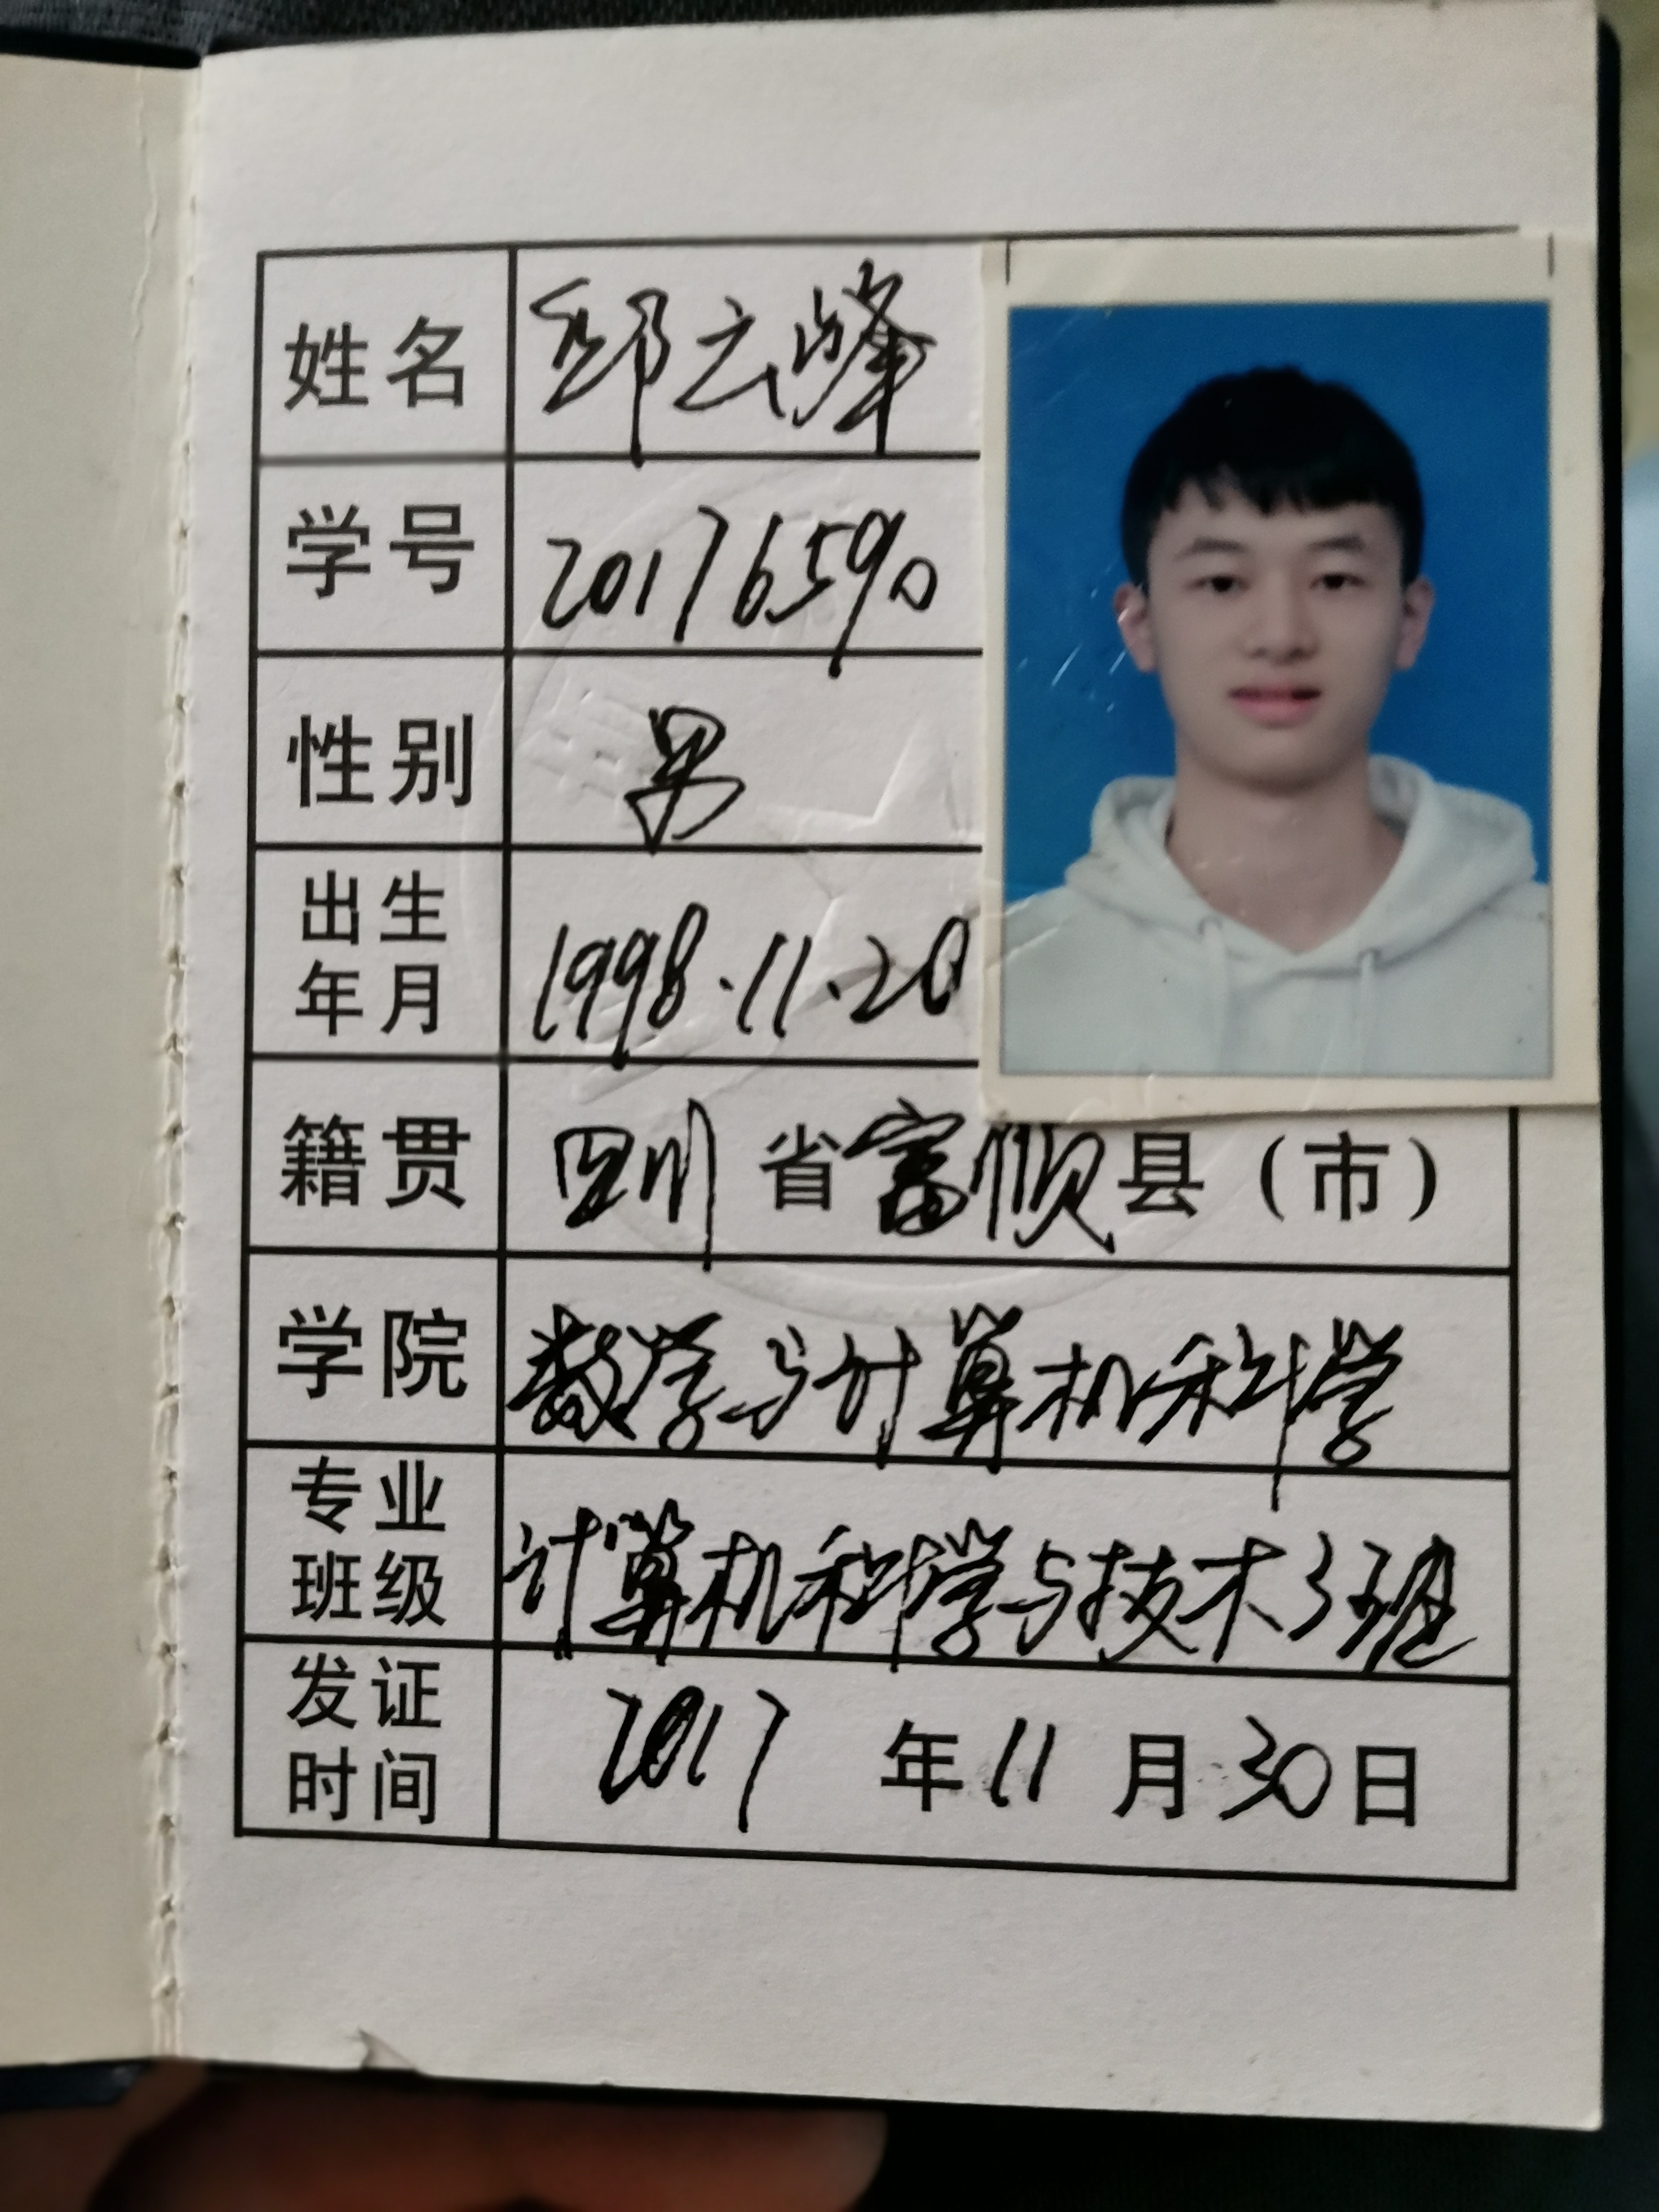 姓名 邱云峰
学号 20176590
性别 男
出生年月 1998.11.20
籍贯 四川省富顺县（市）
学院 数学与计算机科学
专业班级 计算机科学与技术3班
发证时间 2017年11月30日